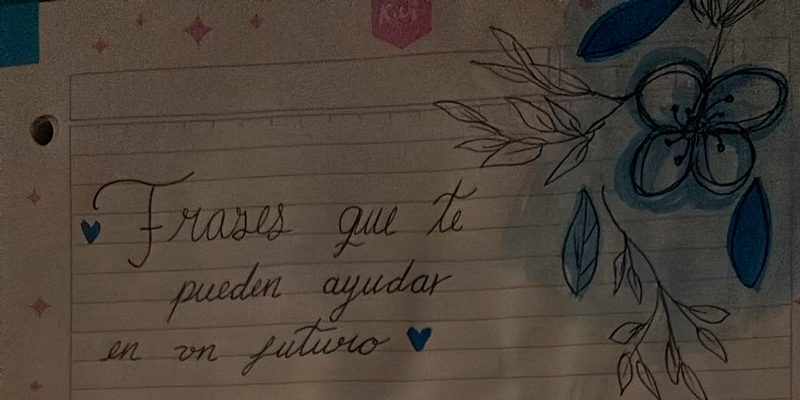 Frases que te
pueden ayudar
en un futuro